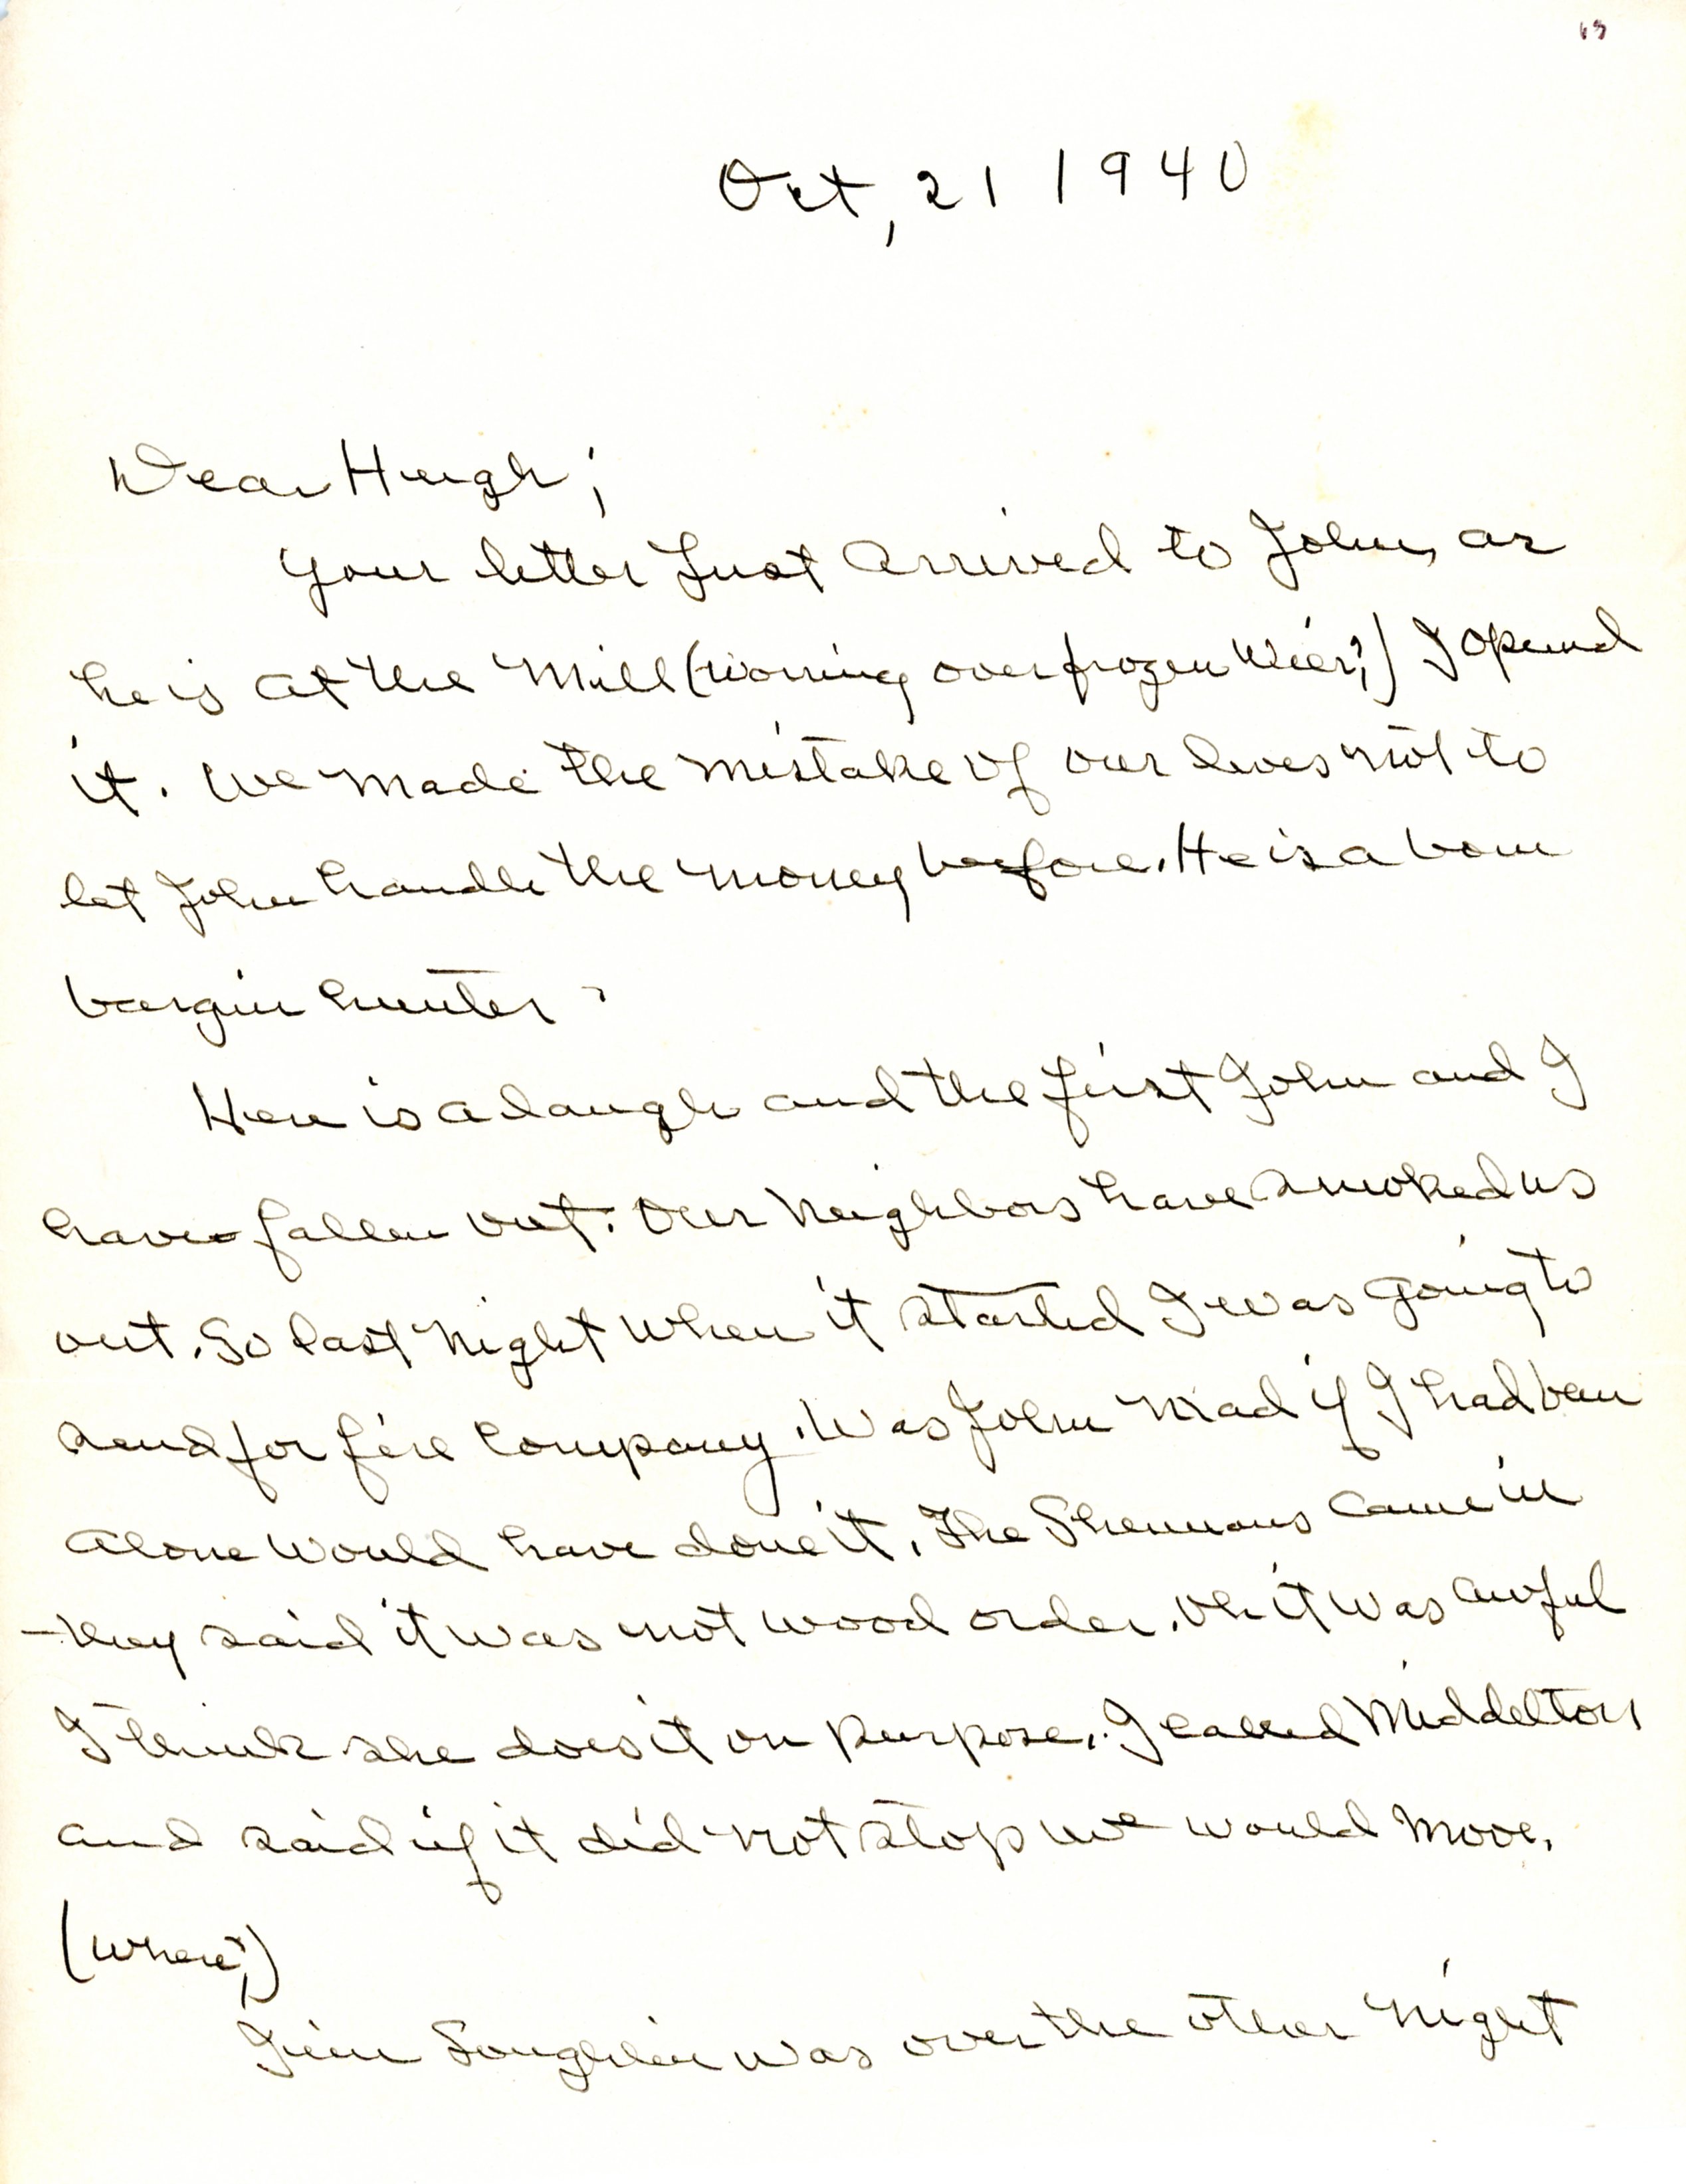 63
Oct, 21 1940
Dear Hugh;
Your letter Just arrived to John, as
he is at the Mill (worring over frozen Wier?) I opened
it. We made the mistake of our lives not to
let John handle the money before. He is a born
bargin hunter.
Here is a laugh and the first John and I
have fallen out. Our Neighbors have smoked us
out. So last Night When it started I was going to
send for fire Company. Was John Mad if I had been
alone Would have done it. The Shermons came in
they said it was not wood order. Oh it was awful
I think she does it on purpose. I called Middeltons
and said if it did not stop we would Move.
(Where?)
Jim Loughlin was over the other Night